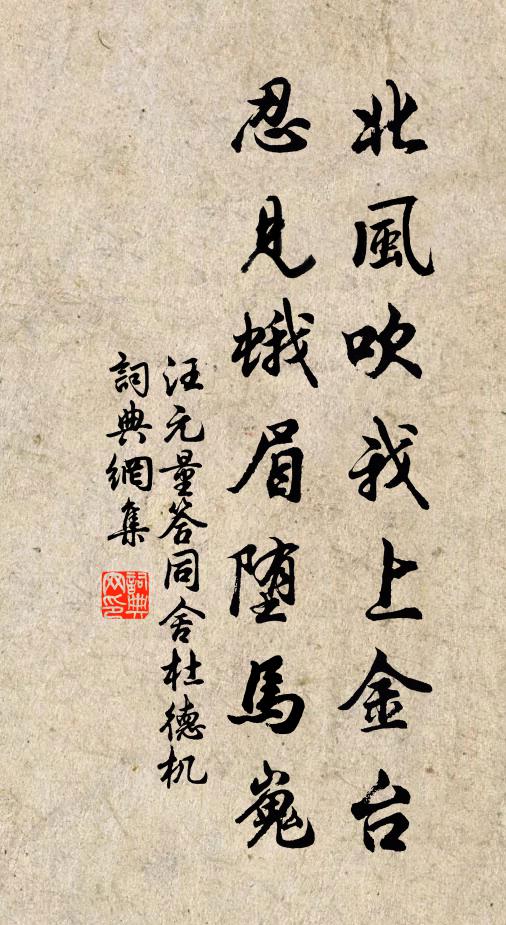 北風吹我上金台
忍見蛾眉堕馬嵬
汪元量答同舍杜德机
詞典網集
詞典網印